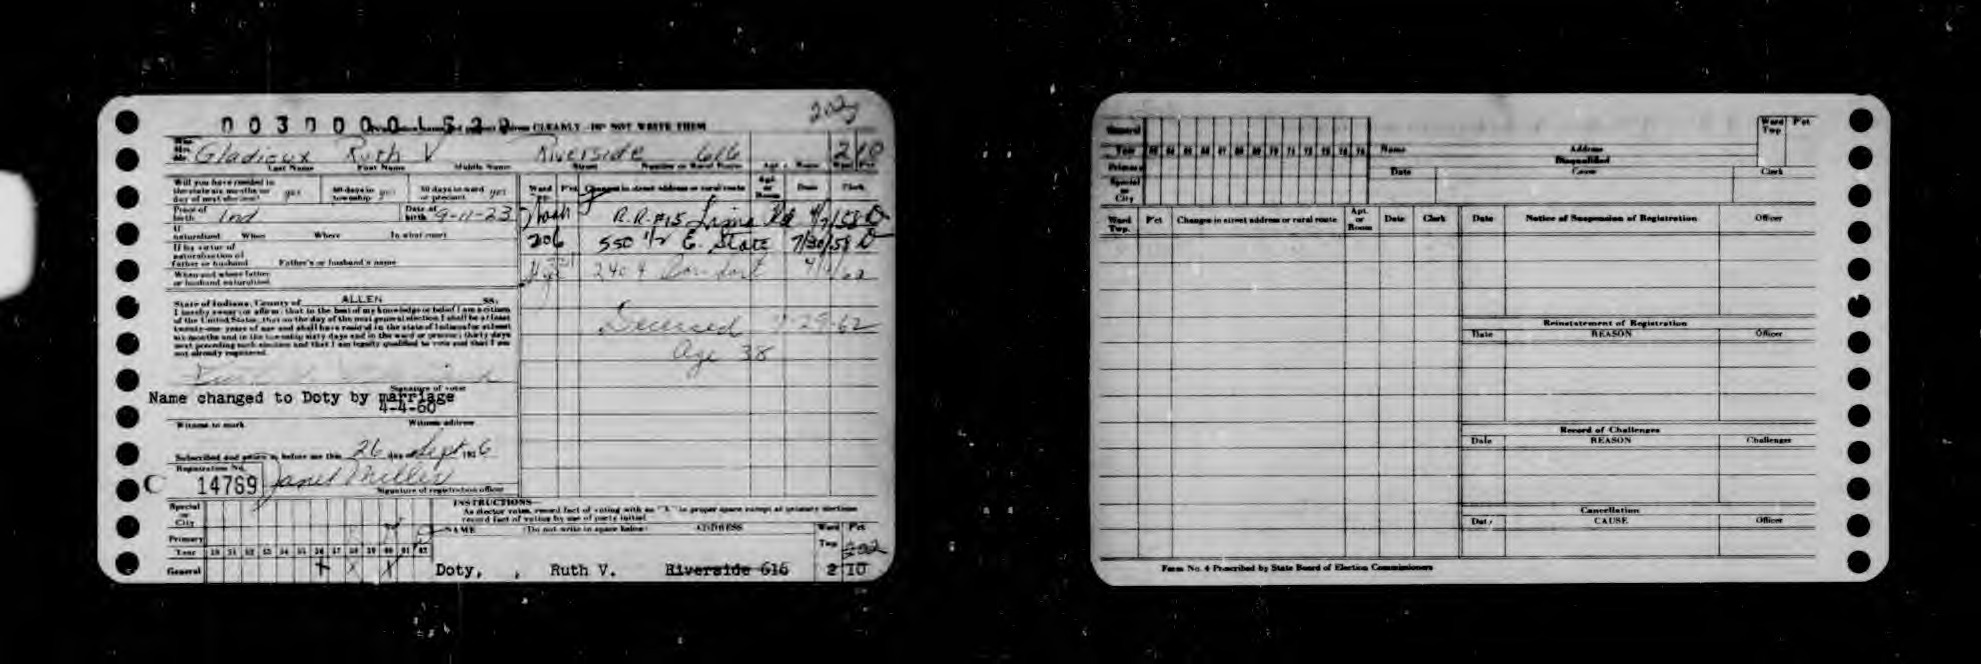 CLEARLY - DO NOT WRITE THEM
Gladioux Ruth V Riverside 616 2 10
Last Name First Name Middle Name Street Number or Rural Route Apt. or Room Ward Pct.
Will you have resided in the state six months on day of next election? yes 60 days in township yes 30 days in ward or precinct yes
Ward Twp. Pct. Changes in street address or rural route Apt. or Room Date Clerk
Proof of birth Ind Date of birth 9-11-23
Wash R.R. #15 Lima Rd 4/9/58
If naturalized When Where In what court
206 550 1/2 E. State 7/30/59
If by virtue of naturalization of father or husband Father's or husband's name
2404 4/4/62
When and where father or husband naturalized
State of Indiana, County of ALLEN SS:
I hereby swear (or affirm) that to the best of my knowledge or belief I am a citizen
of the United States, that on the day of the next general election I shall be at least
twenty-one years of age and shall have resided in the state of Indiana for at least
six months and in the township sixty days and in the ward or precinct thirty days
next preceding such election and that I am legally qualified to vote and that I am
not already registered.
Deceased 7-29-62
Age 38
Signature of voter
Name changed to Doty by marriage
4-4-60
Witness to mark Witness address
Subscribed and sworn to before me this 26 day of Sept 1956
Registration No.
C 14769 Janet Miller
Signature of registration officer
INSTRUCTIONS
As elector votes, record fact of voting with an "X" in proper space except at primary elections
record fact of voting by use of party initial.
Special or City
NAME (Do not write in space below) ADDRESS Ward Twp. Pct.
Primary
Year 50 51 52 53 54 55 56 57 58 59 60 61 62
General
Doty, , Ruth V. Riverside 616 2 10
General
Year 63 64 65 66 67 68 69 70 71 72 73 74 75 Name Address Ward Twp. Pct.
Primary
Disqualified
Special or City
Date Cause Clerk
Ward Twp. Pct. Changes in street address or rural route Apt. or Room Date Clerk Date Notice of Suspension of Registration Officer
Reinstatement of Registration
Date REASON Officer
Record of Challenges
Date REASON Challenger
Cancellation
Date CAUSE Officer
Form No. 4 Prescribed by State Board of Election Commissioners